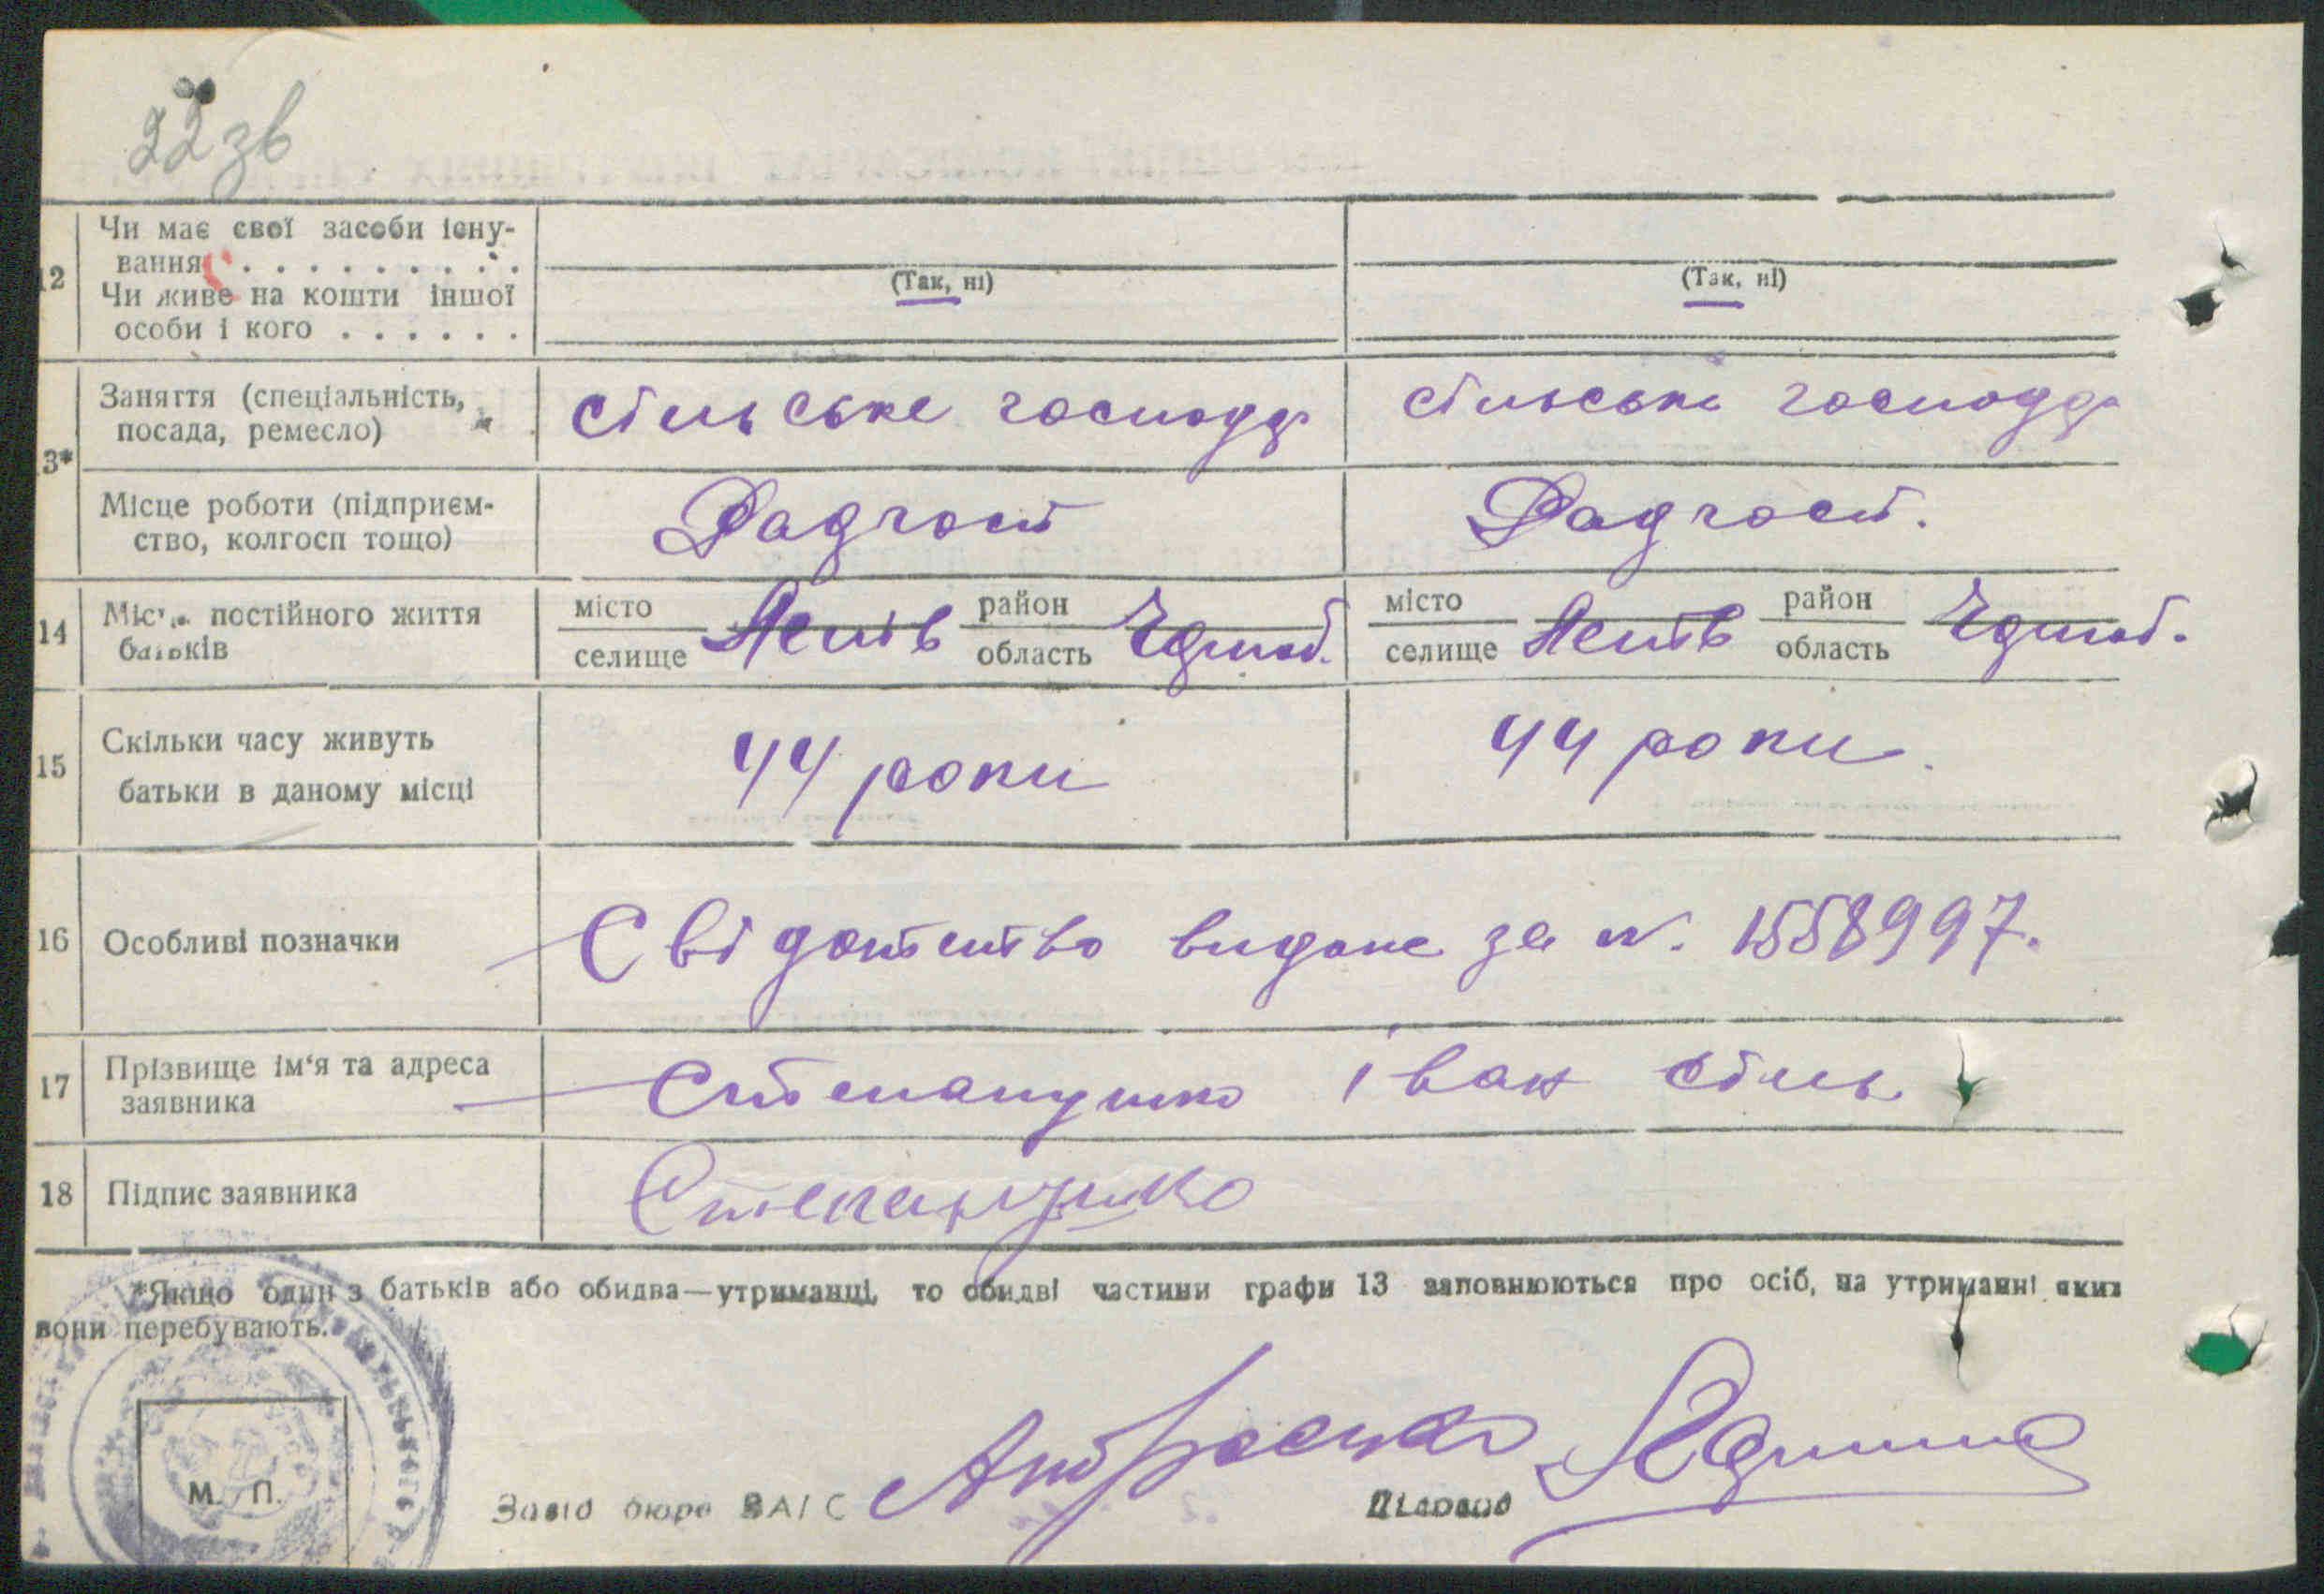 22 зв
12 Чи має свої засоби існу-
вання . . . . . . . . . .
(Так, ні) (Так, ні)
Чи живе на кошти іншої
особи і кого . . . . . .
3* Заняття (спеціальність,
посада, ремесло)
сільське господ. сільське господ.
Місце роботи (підприєм-
ство, колгосп тощо)
Радгосп Радгосп.
14 Місце постійного життя
батьків
місто район місто район
селище область селище область
15 Скільки часу живуть
батьки в даному місці
44 роки 44 роки.
16 Особливі позначки Свідотство видане за N. 1558997.
17 Прізвище ім'я та адреса
заявника
Степанушко Іван
18 Підпис заявника Степанушко
*Якщо один з батьків або обидва—утриманці, то обидві частини графи 13 заповнюються про осіб, на утриманні яких
вони перебувають.
М. П.
Завід бюро ЗАГС Діловод